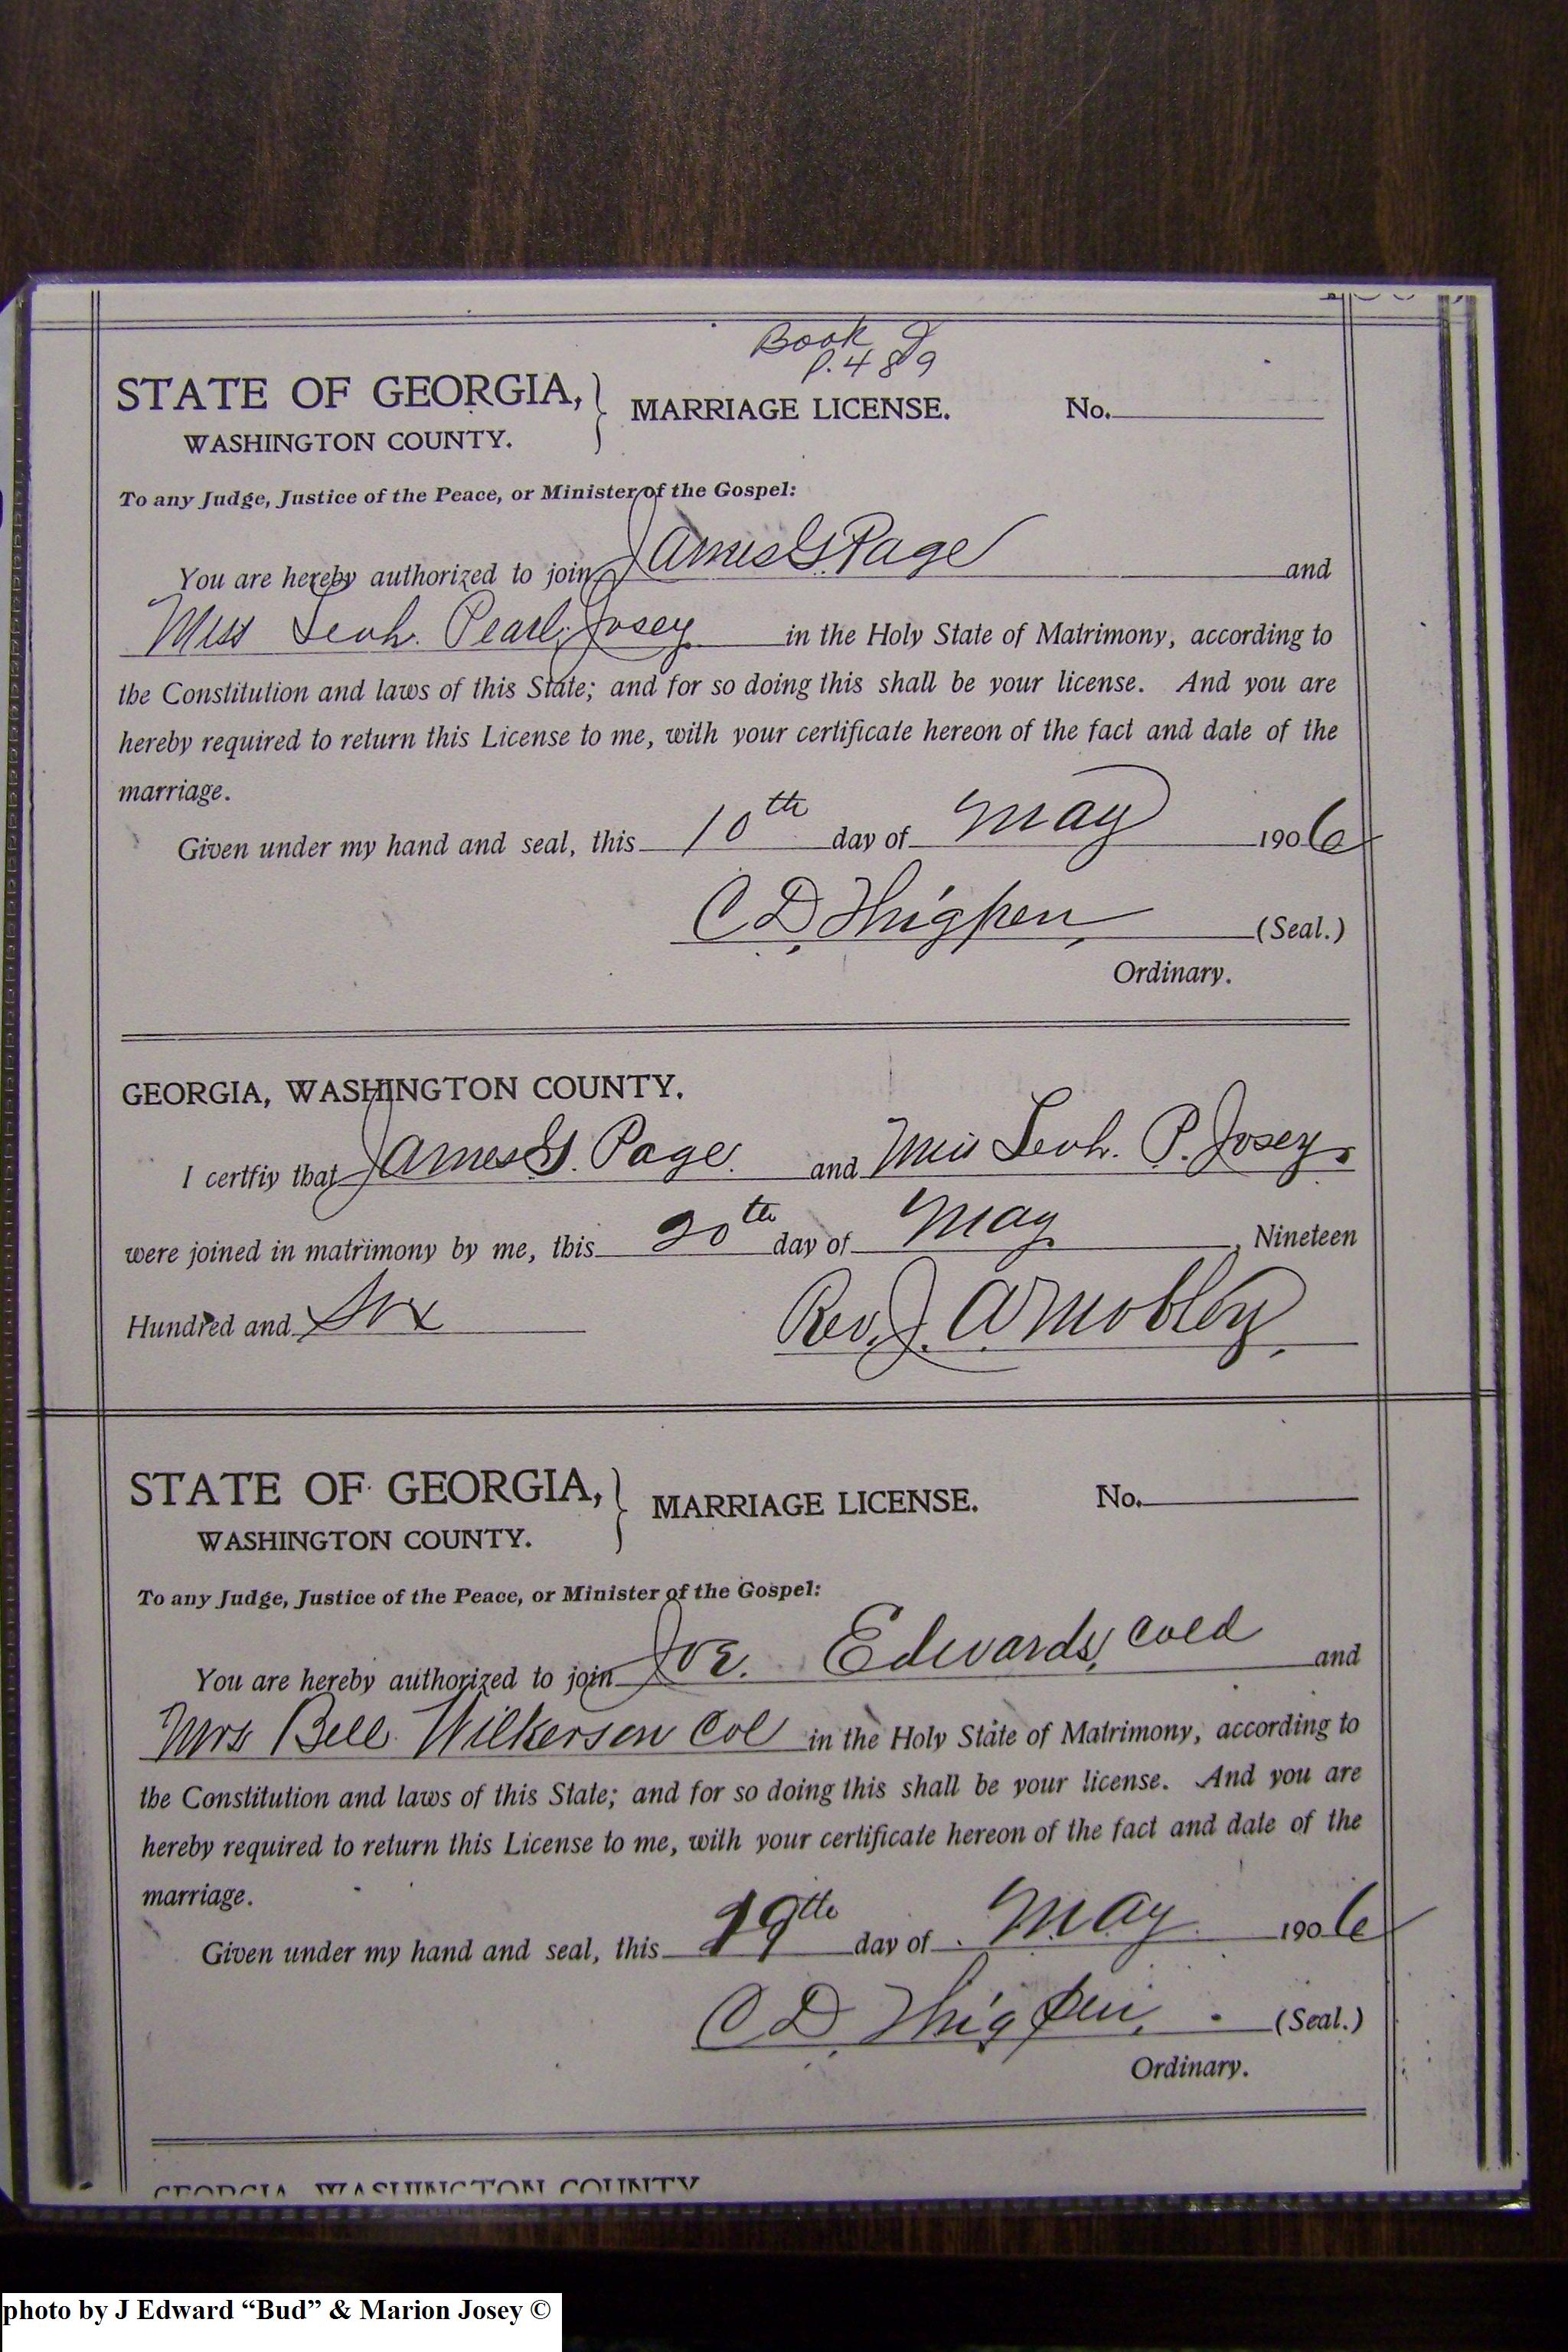 Book I
P. 489
STATE OF GEORGIA, } MARRIAGE LICENSE. No.
WASHINGTON COUNTY.
To any Judge, Justice of the Peace, or Minister of the Gospel:
You are hereby authorized to join James G. Page and
Miss Leoh. Pearl Josey in the Holy State of Matrimony, according to
the Constitution and laws of this State; and for so doing this shall be your license. And you are
hereby required to return this License to me, with your certificate hereon of the fact and date of the
marriage.
Given under my hand and seal, this 10th day of May 1906
C D Thigpen, (Seal.)
Ordinary.
GEORGIA, WASHINGTON COUNTY.
I certfiy that James G. Page. and Miss Leoh. P. Josey.
were joined in matrimony by me, this 20th day of May , Nineteen
Hundred and Six Rev. J. A Mobley,
STATE OF GEORGIA, } MARRIAGE LICENSE. No.
WASHINGTON COUNTY.
To any Judge, Justice of the Peace, or Minister of the Gospel:
You are hereby authorized to join Joe. Edwards, Cold and
Mrs Bell Wilkerson Col in the Holy State of Matrimony, according to
the Constitution and laws of this State; and for so doing this shall be your license. And you are
hereby required to return this License to me, with your certificate hereon of the fact and date of the
marriage.
Given under my hand and seal, this 19th day of May 1906
C D Thigpen, (Seal.)
Ordinary.
GEORGIA, WASHINGTON COUNTY
photo by J Edward “Bud” & Marion Josey ©